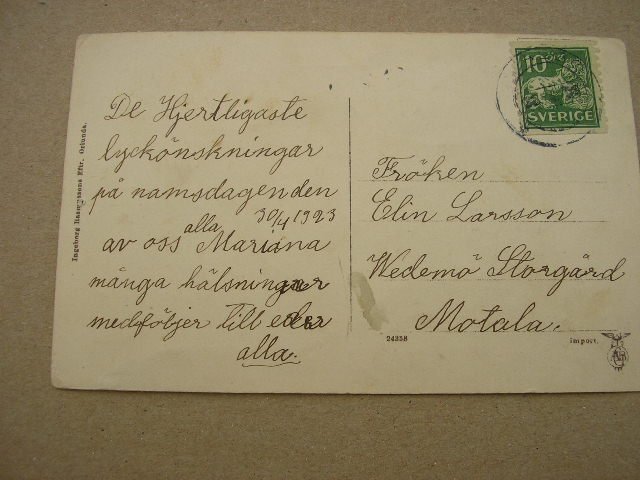 De Hjertligaste
lyckönskningar
på namsdagen den
30/4 1923
av oss alla Mariana
många hälsningar
medföljer till eder
alla.
Ingeborg Rasmussons Eftr. Grimnda.
10
SVERIGE
Fröken
Elin Larsson
Wedemö Storgård
Motala.
24358
import.